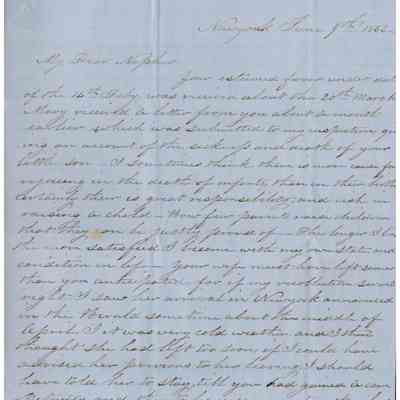 Newyork June 9th 1862
My Dear Nephew
Your esteemed favor under date
of the 14th Feby was received about the 20th March
Mary received a letter from you about a month
earlier which was submitted to my inspection giv
ing an account of the sickness and death of your
little son - I sometimes think there is more cause for
rejoicing in the death of infants than in their birth
certainly there is great responsibility and risk in
raising a child - How few parents raise children
that they can be justly proud of - The longer I live
the more satisfied I become with my own state and
condition in life - Your wife must have left sooner
than you anticipated for if my recollection serves
right I saw her arrival in Newyork announced
in the Herald some time about the middle of
April It was very cold weather and I then
thought she had left too soon, if I could have
advised her previous to her leaving I should
have told her to stay till you had gained a com